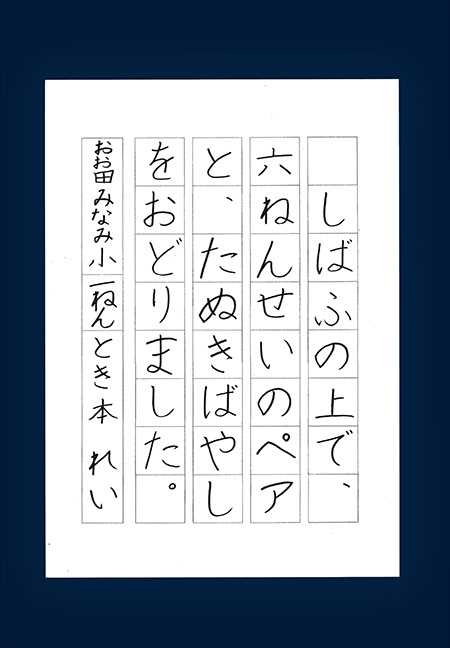 しばふの上で、
六ねんせいのペア
と、たぬきばやし
をおどりました。
おお田みなみ小 一ねん とき本 れい